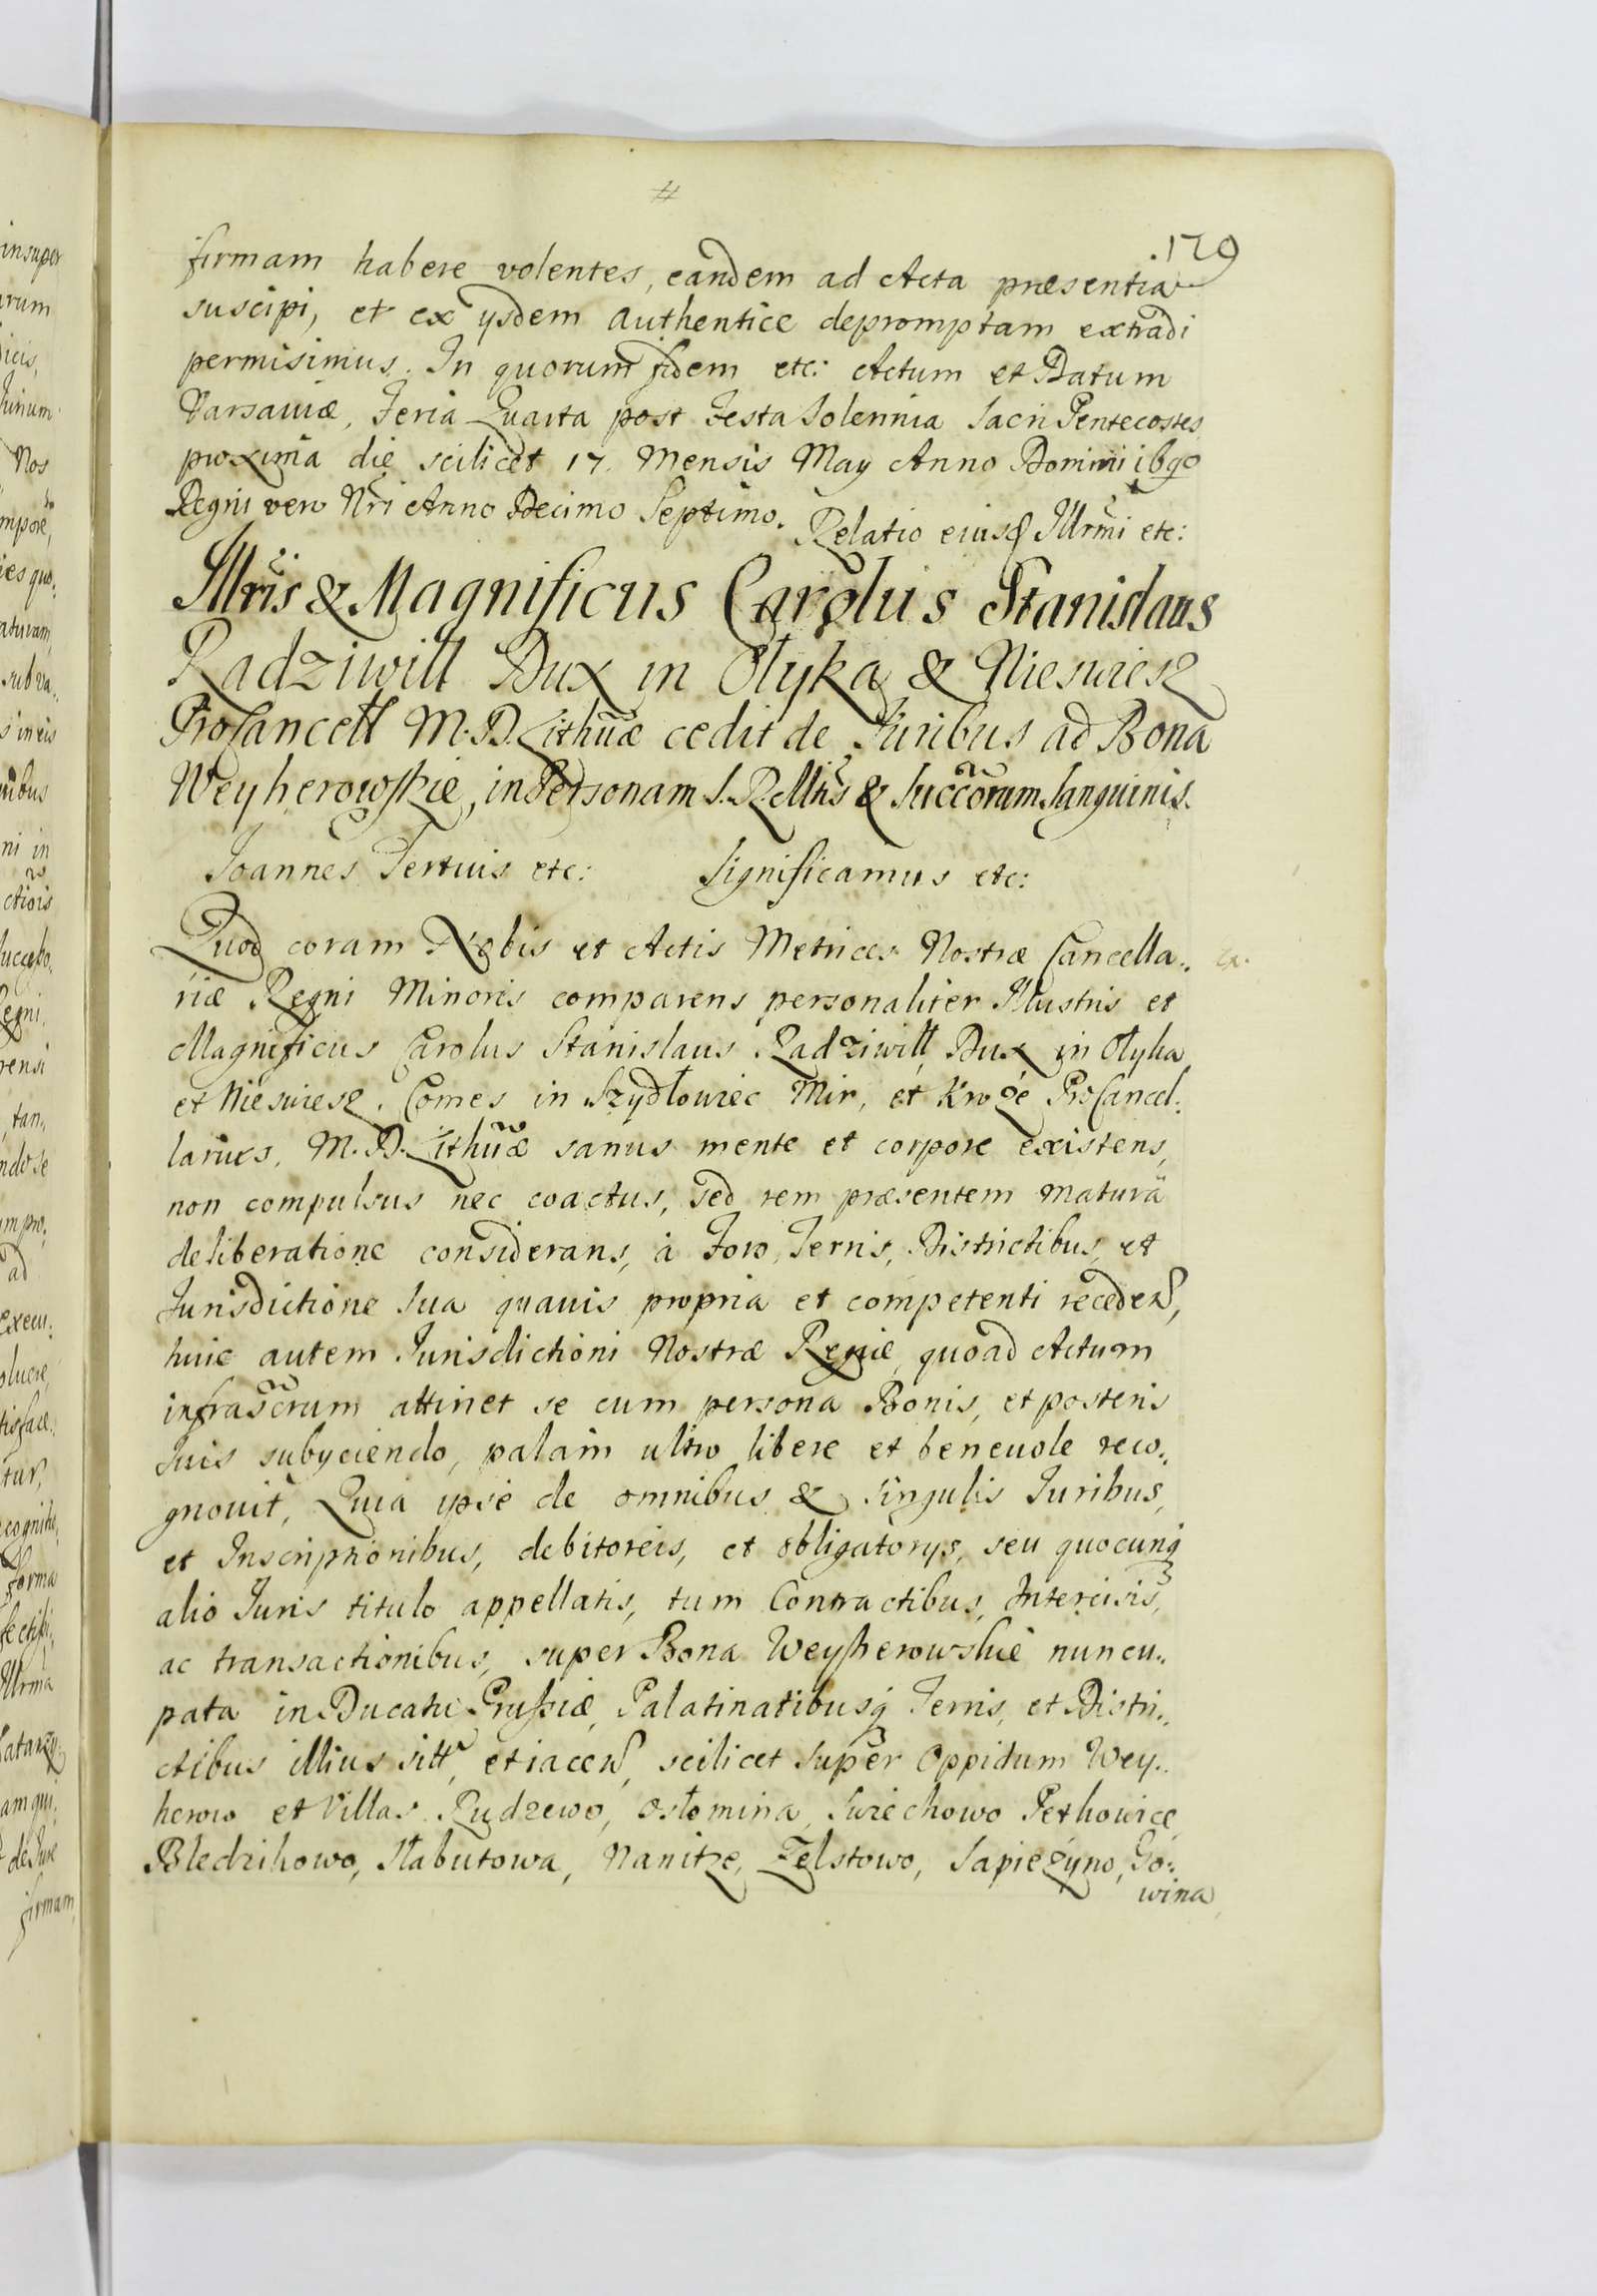 179
firmam habere volentes, eandem ad Acta præsentia
suscipi, et ex ysdem authentice depromptam extradi
permisimus. In quorum fidem etc: Actum et Datum
Varsauiæ, Feria Quarta post Festa Solennia Sacri Pentecostes
proxima die scilicet 17. Mensis May Anno Domini 1690
Regni vero Nri Anno Decimo Septimo. Relatio eiusd Illrmi etc:
Illris & Magnificus Carolus Stanislaus
Radziwiłł Dux in Ołyka & Nieswiesz
ProCancell M. D. Lithuæ cedit de Juribus ad Bona
Weyherowskie, in Personam S. R. Mtis & Succorum Sanguinis.
Joannes Tertius etc: Significamus etc:
Quod coram Nobis et Actis Metrices Nostræ Cancella..
riæ Regni Minoris comparens personaliter Illustris et
Magnificus Carolus Stanislaus Radziwiłł Dux in Ołyka
et Nieswiesz. Comes in Szydłowiec Mir, et Kroże ProCancel:
larius, M. D. Lithuæ sanus mente et corpore existens,
non compulsus nec coactus, sed rem præsentem matura
deliberatione considerans, à Foro, Terris, Districtibus, et
Jurisdictione sua quauis propria et competenti receden,
huic autem Jurisdictioni Nostræ Regiæ, quoad Actum
infrascrum attinet se cum persona Bonis, et posteris
suis subyciendo, palam ultro libere et beneuole reco..
gnouit, Quia ipse de omnibus & singulis Juribus,
et Inscriptionibus, debitoreis, et obligatorys, seu quocunq
alio Juris titulo appellatis, tum Contractibus, Intercisis,
ac transactionibus, super Bona Weyherowskie nuncu..
pata in Ducatu Prussiæ, Palatinatibusq Terris, et Distri..
ctibus illius sitt, et iacen, scilicet super Oppidum Wey..
herow et Villas Rudzewo, Ostomina, Swiechowo Pethowice,
Bledzikowo, Stabutowa, Nanitze, Zelstowo, Sapiezyno, Go:
wina